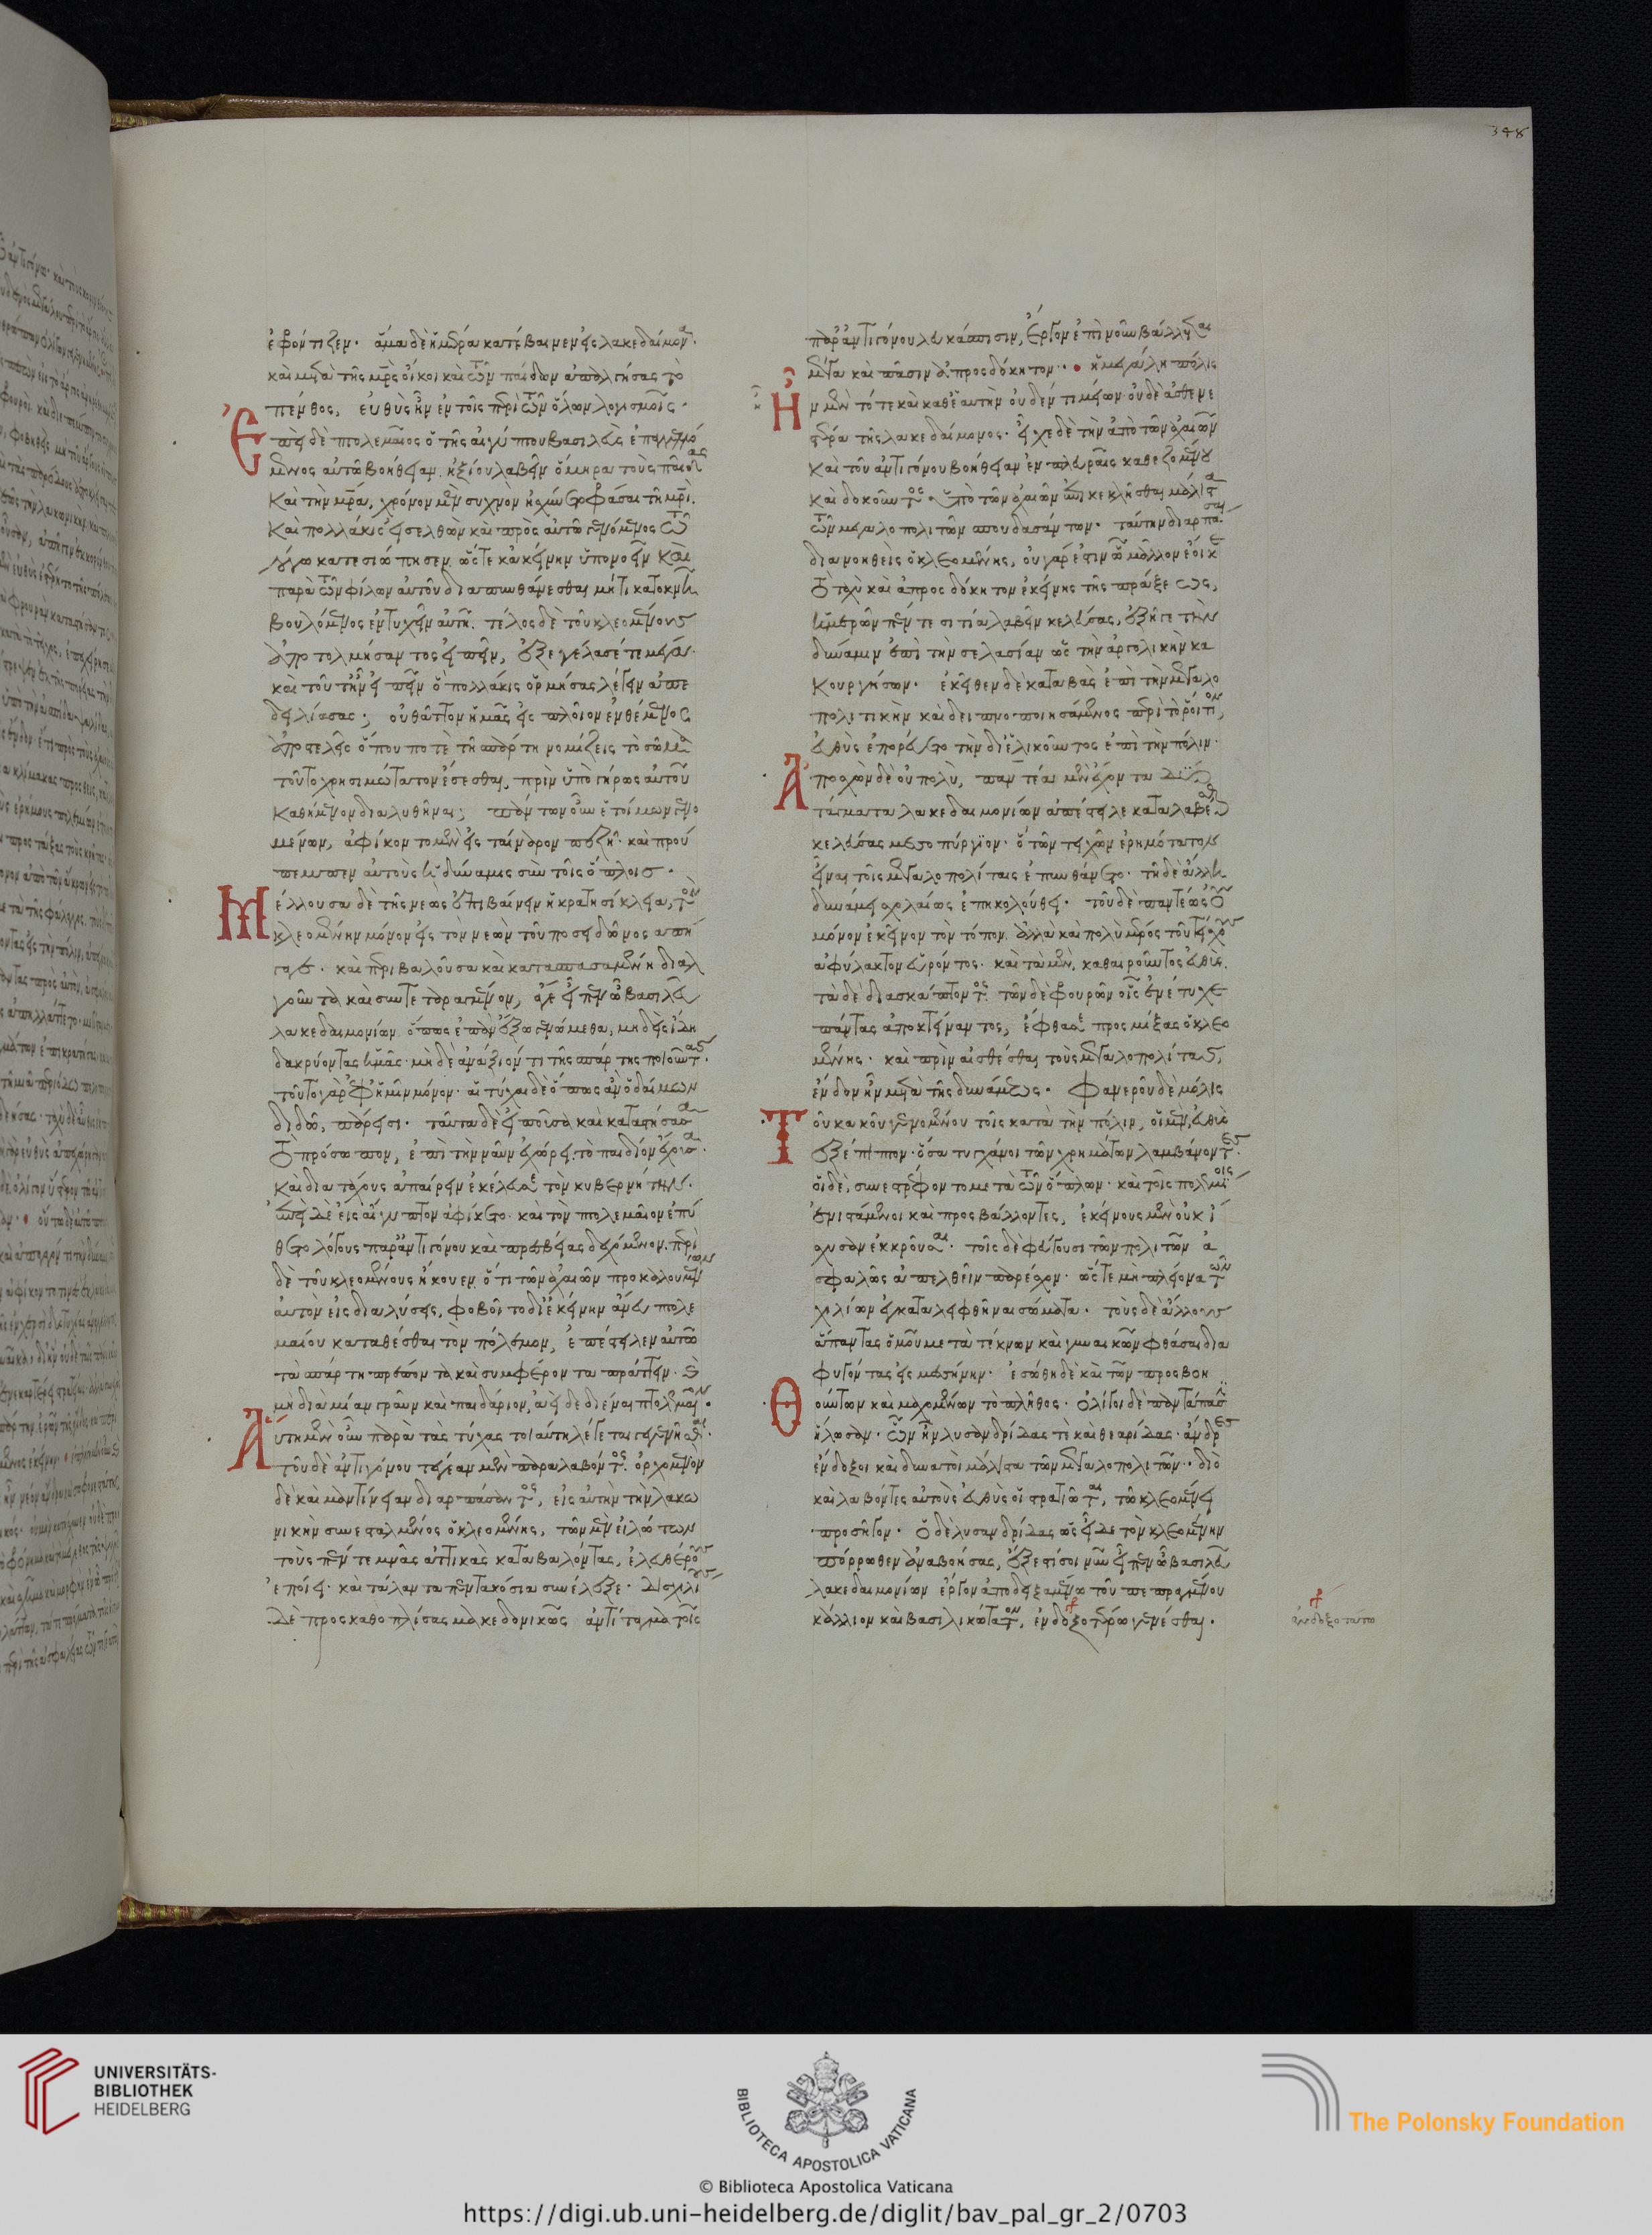 ἐφρόντιζεν· ἅμα δὲ ἡμέρα κατέβαινεν εἰς λακεδαίμονα·
καὶ μετὰ τῆς μητρὸς οἴκοι καὶ τῶν παίδων ἀπαλγήσας τὸ
πένθος, εὐθὺς ἦν ἐν τοῖς περὶ τῶν ὅλων λογισμοῖς·
Ἐπεὶ δὲ πτολεμαῖος ὁ τῆς αἰγύπτου βασιλεὺς ἐπαγγελλό
μενος αὐτῶ βοήθειαν, ἠξίου λαβεῖν ὅμηρα τοὺς παῖδας
καὶ τὴν μητέρα, χρόνον μὲν συχνὸν ἠσχύνετο φράσαι τῆ μητρί·
καὶ πολλάκις εἰσελθὼν καὶ πρὸς αὐτῶ γενόμενος τῶ
λόγω κατεσιώπησεν, ὥστε κἀκείνην ὑπονοεῖν καὶ
παρὰ τῶν φίλων αὐτοῦ διαπυνθάνεσθαι μή τι κατοκνεῖ
βουλόμενος ἐντυχεῖν αὐτῆ. τέλος δὲ τοῦ κλεομένους
ἀποτολμήσαντος εἰπεῖν, ἐξεγέλασέ τε μέγα·
καὶ τοῦτ' ἦν εἶπεν ὃ πολλάκις ὁρμήσας λέγειν ἀπε
δειλίασας; οὐ θᾶττον ἡμᾶς εἰς πλοῖον ἐνθέμενος
ἀποστελεῖς ὅπου ποτὲ τῆ σπάρτη νομίζεις τὸ σῶμα
τοῦτο χρησιμώτατον ἔσεσθαι, πρὶν ὑπὸ γήρως αὐτοῦ
καθήμενον διαλυθῆναι; πάντων οὖν ἑτοίμων γενο
μένων, ἀφίκοντο μὲν εἰς ταίναρον πεζῆ· καὶ πρού
πεμπεν αὐτοὺς ἡ δύναμις σὺν τοῖς ὅπλοις·
Μέλλουσα δὲ τῆς νεὼς ἐπιβαίνειν ἡ κρατησίκλεια, τὸν
κλεομένην μόνον εἰς τὸν νεὼν τοῦ ποσειδῶνος ἀπή
γαγε· καὶ περιβαλοῦσα καὶ κατασπασαμένη διαλ
γοῦντα καὶ συντεταραγμένον, ἄγε εἶπεν ὦ βασιλεῦ
λακεδαιμονίων, ὅπως ἐπὰν ἔξω γενώμεθα, μηδεὶς ἴδη
δακρύοντας ἡμᾶς· μὴ δὲ ἀνάξιόν τι τῆς σπάρτης ποιοῦντας·
τοῦτο γὰρ ἐφ' ἡμῖν μόνον· αἱ τύχαι δὲ ὅπως ἂν ὁ δαίμων
διδῶ, πάρεισι· ταῦτα δὲ εἰποῦσα καὶ καταστήσασα
τὸ πρόσωπον, ἐπὶ τὴν ναῦν ἐχώρει τὸ παιδίον ἔχουσα·
καὶ διὰ τάχους ἀπαίρειν ἐκέλευσε τὸν κυβερνήτην·
ἐπεὶ δὲ εἰς αἴγυπτον ἀφίκετο· καὶ τὸν πτολεμαῖον ἐπύ
θετο λόγους παρ' ἀντιγόνου καὶ πρεσβείας δεχόμενον, περὶ
δὲ τοῦ κλεομένους ἤκουεν, ὅτι τῶν ἀχαιῶν προκαλουμένων
αὐτὸν εἰς διαλύσεις, φοβοῖτο δι' ἐκείνην ἄνευ πτολε
μαίου καταθέσθαι τὸν πόλεμον, ἐπέστειλεν αὐτῶ
τὰ σπάρτη πρέποντα καὶ συμφέροντα πράττειν· καὶ
μὴ διὰ μίαν γραῦν καὶ παιδάριον, ἀεὶ δεδιέναι πτολεμαῖον·
Αὕτη μὲν οὖν παρὰ τὰς τύχας τοιαύτη λέγεται γεγενῆσθαι·
τοῦ δὲ ἀντιγόνου τεγέαν μὲν παραλαβόντος· ὀρχομενὸν
δὲ καὶ μαντίνειαν διαρπάσαντος, εἰς αὐτὴν τὴν λακω
νικὴν συνεσταλμένος ὁ κλεομένης, τῶν μὲν εἱλώτων
τοὺς πέντε μνᾶς ἀττικὰς καταβαλόντας, ἐλευθέρους
ἐποίει· καὶ τάλαντα πεντακόσια συνέλεξε· δισχιλίους
δὲ προσκαθοπλίσας μακεδονικῶς ἀντίταγμα τοῖς
παρ' ἀντιγόνου λευκάσπισιν, ἔργον ἐπὶ νοῦν βάλλεται
μέγα καὶ πᾶσιν ἀπροσδόκητον· ἡ μεγάλη πόλις
Ἦν μὲν τότε καὶ καθ' ἑαυτὴν οὐδέν τι μείων οὐδὲ ἀσθενε
στέρα τῆς λακεδαίμονος· εἶχε δὲ τὴν ἀπὸ τῶν ἀχαιῶν
καὶ τοῦ ἀντιγόνου βοήθειαν ἐν πλευραῖς καθεζομένου
καὶ δοκοῦντος ὑπὸ τῶν ἀχαιῶν ἐπικεκλῆσθαι μάλιστα
τῶν μεγαλοπολιτῶν σπουδασάντων· ταύτην διαρπάσαι
διανοηθεὶς ὁ κλεομένης, οὐ γάρ ἐστιν ᾧ μᾶλλον ἔοικε
τὸ ταχὺ καὶ ἀπροσδόκητον ἐκείνης τῆς πράξεως,
ἡμερῶν πέντε σιτία λαβεῖν κελεύσας, ἐξῆγε τὴν
δύναμιν ἐπὶ τὴν σελασίαν ὡς τὴν ἀργολικὴν κα
κουργήσων· ἐκεῖθεν δὲ καταβὰς ἐπὶ τὴν μεγαλο
πολιτικὴν καὶ δειπνοποιησάμενος περὶ τὸ ῥοίτιον,
εὐθὺς ἐπορεύετο τὴν δι' ἑλικοῦντος ἐπὶ τὴν πόλιν·
Ἀποσχὼν δὲ οὐ πολὺ, παντέα μὲν ἔχοντα δύο
τάγματα λακεδαιμονίων ἀπέστειλε καταλαβεῖν
κελεύσας μεσοπύργιον· ὃ τῶν τειχῶν ἐρημότατον
εἶναι τοῖς μεγαλοπολίταις ἐπυνθάνετο· τῆ δὲ ἄλλη
δυνάμει σχολαίως ἐπηκολούθει· τοῦ δὲ παντέως οὐ
μόνον ἐκεῖνον τὸν τόπον, ἀλλὰ καὶ πολὺ μέρος τοῦ τείχους
ἀφύλακτον εὑρόντος· καὶ τὰ μὲν, καθαιροῦντος εὐθὺς.
τὰ δὲ διασκάπτοντος· τῶν δὲ φρουρῶν οἷς ἐνέτυχε
πάντας ἀποκτείναντος, ἔφθασε προσμίξας ὁ κλεο
μένης· καὶ πρὶν αἰσθέσθαι τοὺς μεγαλοπολίτας,
ἔνδον ἦν μετὰ τῆς δυνάμεως· φανεροῦ δὲ μόλις
Τοῦ κακοῦ γενομένου τοῖς κατὰ τὴν πόλιν, οἱ μὲν, εὐθὺς
ἐξέπιπτον· ὅσα τυγχάνοι τῶν χρημάτων λαμβάνοντες·
οἱ δὲ, συνεστρέφοντο μετὰ τῶν ὅπλων· καὶ τοῖς πολεμίοις
ἐνιστάμενοι καὶ προσβάλλοντες, ἐκείνους μὲν οὐκ ἴ
σχυσαν ἐκκροῦσαι· τοῖς δὲ φεύγουσι τῶν πολιτῶν ἀ
σφαλῶς ἀπελθεῖν παρέσχον· ὥστε μὴ πλείονα τῶν
χιλίων ἐγκαταλειφθῆναι σώματα· τοὺς δὲ ἄλλους
ἅπαντας ὁμοῦ μετὰ τέκνων καὶ γυναικῶν φθάσαι δια
φυγόντας εἰς μεσήνην· ἐσώθη δὲ καὶ τῶν προσβοη
Θούντων καὶ μαχομένων τὸ πλῆθος· ὀλίγοι δὲ παντάπασιν
ἥλωσαν· ὧν ἦν λυσανδρίδας τὲ καὶ θεαρίδας· ἄνδρες
ἔνδοξοι καὶ δυνατοὶ μάλιστα τῶν μεγαλοπολιτῶν· διὸ
καὶ λαβόντες αὐτοὺς εὐθὺς οἱ στρατιῶται, τῶ κλεομένει
προσῆγον· ὁ δὲ λυσανδρίδας ὡς εἶδε τὸν κλεομένην
πόρρωθεν ἀναβοήσας, ἔξεστί σοι νῦν εἶπεν ὦ βασιλεῦ
λακεδαιμονίων ἔργον ἀποδειξαμένω τοῦ πεπραγμένου
κάλλιον καὶ βασιλικώτατον, ἐνδοξοτέρω γενέσθαι·
ἐνδοξοτάτω
348
UNIVERSITÄTS-
BIBLIOTHEK
HEIDELBERG
BIBLIOTECA APOSTOLICA VATICANA
The Polonsky Foundation
© Biblioteca Apostolica Vaticana
https://digi.ub.uni-heidelberg.de/diglit/bav_pal_gr_2/0703